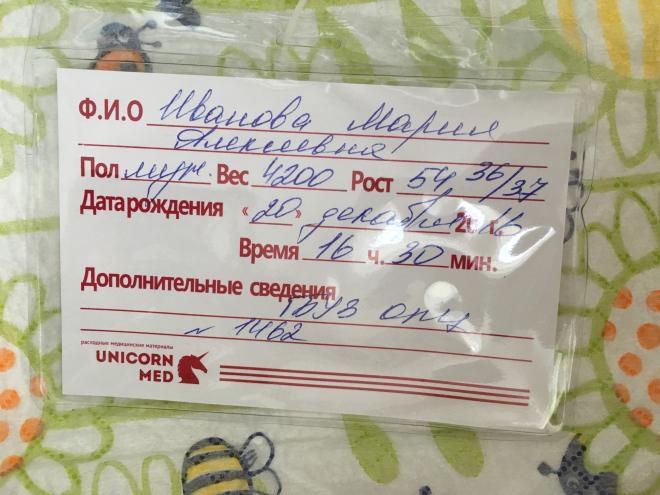 Ф.И.О Иванова Мария
Алексеевна
Пол муж. Вес 4200 Рост 54 36/37
Дата рождения «20» декабря 2016 г.
Время 16 ч. 30 мин.
Дополнительные сведения
ГБУЗ ОПЦ
№ 1462
расходные медицинские материалы
UNICORN
MED